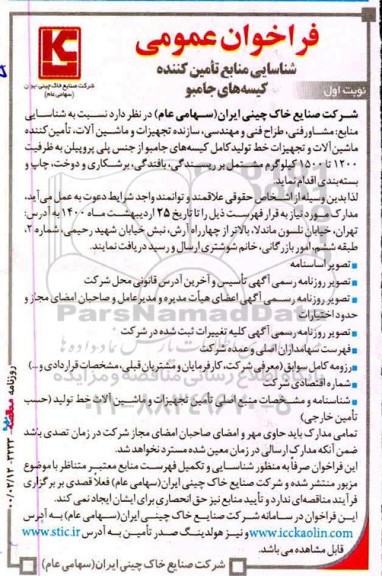 فراخوان عمومی
شناسایی منابع تأمین کننده
کیسه‌های جامبو
شرکت صنایع خاک چینی ایران
(سهامی عام)
نوبت اول
شرکت صنایع خاک چینی ایران (سهامی عام) در نظر دارد نسبت به شناسایی
منابع: مشاور فنی، طراح فنی و مهندسی، سازنده تجهیزات و ماشین آلات، تأمین کننده
ماشین آلات و تجهیزات خط تولید کامل کیسه‌های جامبو از جنس پلی پروپیلن به ظرفیت
۱۲۰۰ تا ۱۵۰۰ کیلوگرم مشتمل بر ریسندگی، بافندگی، برشکاری و دوخت، چاپ و
بسته‌بندی اقدام نماید.
لذا بدین وسیله از اشخاص حقوقی علاقمند و توانمند واجد شرایط دعوت به عمل می‌آید،
مدارک مورد نیاز به قرار فهرست ذیل را تا تاریخ ۲۵ اردیبهشت ماه ۱۴۰۰ به آدرس:
تهران، خیابان نلسون ماندلا، بالاتر از چهارراه آرش، نبش خیابان شهید رحیمی، شماره ۲،
طبقه ششم، امور بازرگانی، خانم شوشتری ارسال و رسید دریافت نمایند.
تصویر اساسنامه
تصویر روزنامه رسمی آگهی تأسیس و آخرین آدرس قانونی محل شرکت
تصویر روزنامه رسمی آگهی اعضای هیأت مدیره و مدیرعامل و صاحبان امضای مجاز و
حدود اختیارات
تصویر روزنامه رسمی آگهی کلیه تغییرات ثبت شده در شرکت
فهرست سهامداران اصلی و عمده شرکت
رزومه کامل سوابق (معرفی شرکت، کارفرمایان و مشتریان قبلی، مشخصات قراردادی و...)
شماره اقتصادی شرکت
شناسنامه و مشخصات منبع اصلی تأمین تجهیزات و ماشین آلات خط تولید (حسب
تأمین خارجی)
تمامی مدارک باید حاوی مهر و امضای صاحبان امضای مجاز شرکت در زمان تصدی باشد
ضمن آنکه مدارک ارسالی در زمان معین شده مسترد نخواهد شد.
این فراخوان صرفاً به منظور شناسایی و تکمیل فهرست منابع معتبر متناظر با موضوع
مزبور منتشر شده و شرکت صنایع خاک چینی ایران (سهامی عام) فعلا قصدی بر برگزاری
فرآیند مناقصه‌ای ندارد و تأیید منابع نیز حق انحصاری برای ایشان ایجاد نمی کند.
این فراخوان در سامانه شرکت صنایع خاک چینی ایران (سهامی عام) به آدرس
www.icckaolin.com و نیز هولدینگ صدر تأمین به آدرس www.stic.ir
قابل مشاهده می باشد.
شرکت صنایع خاک چینی ایران (سهامی عام)
ParsNamadData